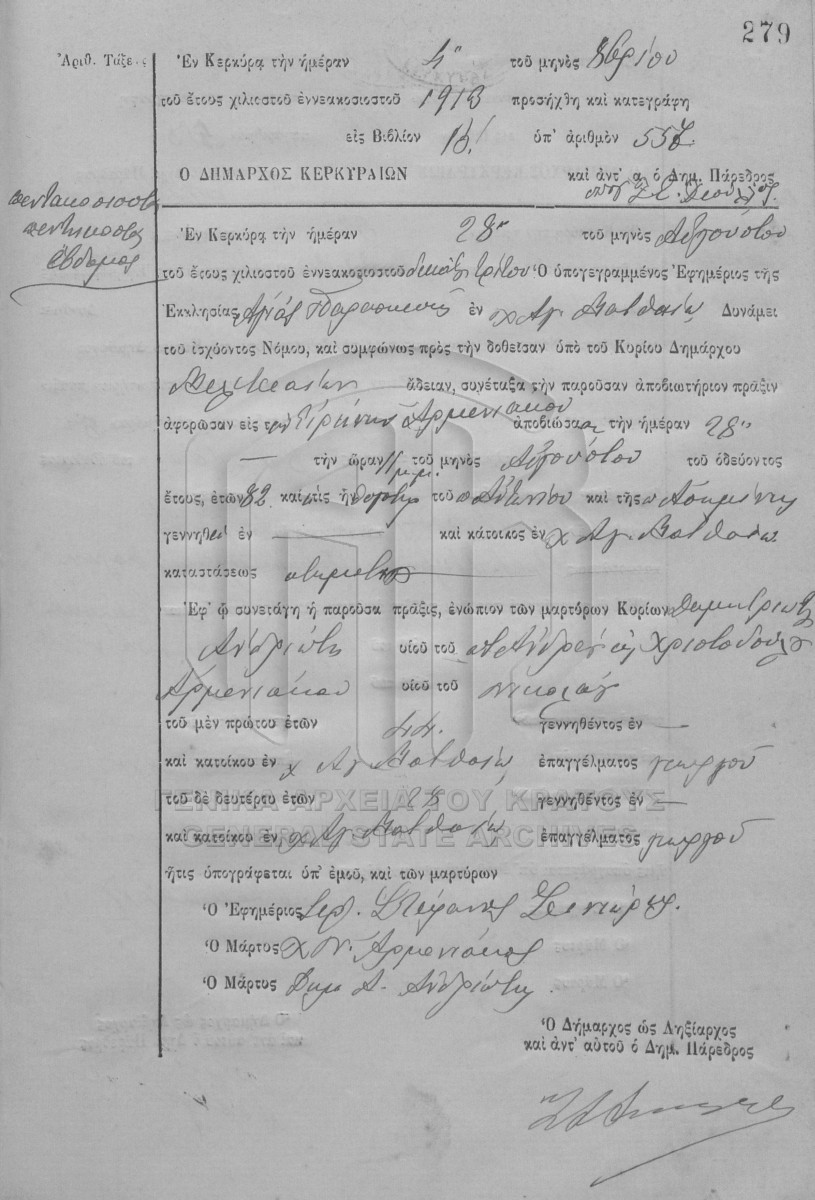 279
Ἀριθ. Τάξεως Ἐν Κερκύρᾳ τὴν ἡμέραν 4η τοῦ μηνὸς 8βρίου
τοῦ ἔτους χιλιοστοῦ ἐννεακοσιοστοῦ 1913 προσήχθη καὶ κατεγράφη
εἰς Βιβλίον ὑπ' ἀριθμὸν 557
Ο ΔΗΜΑΡΧΟΣ ΚΕΡΚΥΡΑΙΩΝ καὶ ἀντ' α. ὁ Δημ. Πάρεδρος
πεντακοσιοστὴ
πεντηκοστὴ
ἑβδόμη
Ἐν Κερκύρᾳ τὴν ἡμέραν 28η τοῦ μηνὸς Αὐγούστου
τοῦ ἔτους χιλιοστοῦ ἐννεακοσιοστοῦ δεκάτου τρίτου Ὁ ὑπογεγραμμένος Ἐφημέριος τῆς
Ἐκκλησίας Ἁγίας Παρασκευῆς ἐν χ Ἁγ. Ματθαίῳ Δυνάμει
τοῦ ἰσχύοντος Νόμου, καὶ συμφώνως πρὸς τὴν δοθεῖσαν ὑπὸ τοῦ Κυρίου Δημάρχου
Μελιτειέων ἄδειαν, συνέταξα τὴν παροῦσαν ἀποβιωτήριον πρᾶξιν
ἀφορῶσαν εἰς τὴν Εἰρήνην Ἀρμενιάκου ἀποβιώσασαν τὴν ἡμέραν 28η
— τὴν ὥραν 11 μ.μ. τοῦ μηνὸς Αὐγούστου τοῦ ὁδεύοντος
ἔτους, ἐτῶν 82 καὶ τις ἦν θυγάτηρ τοῦ π Ἀντωνίου καὶ τῆς π Ἀσημίνης
γεννηθεῖσα ἐν — καὶ κάτοικος ἐν χ Ἁγ. Ματθαίῳ
καταστάσεως κτηματίας
Ἐφ' ᾧ συνετάγη ἡ παροῦσα πρᾶξις, ἐνώπιον τῶν μαρτύρων Κυρίων Δημητρίου
Ἀνδριώτη υἱοῦ τοῦ π Ἀνδρέα καὶ Χριστοδούλου
Ἀρμενιάκου υἱοῦ τοῦ Νικολάου
τοῦ μὲν πρώτου ἐτῶν 44 γεννηθέντος ἐν —
καὶ κατοίκου ἐν χ Ἁγ. Ματθαίῳ ἐπαγγέλματος γεωργοῦ
τοῦ δὲ δευτέρου ἐτῶν γεννηθέντος ἐν —
ΓΕΝΙΚΑ ΑΡΧΕΙΑ ΤΟΥ ΚΡΑΤΟΥΣ
καὶ κατοίκου ἐν χ Ἁγ. Ματθαίῳ ἐπαγγέλματος γεωργοῦ
GENERAL STATE ARCHIVES
ἥτις ὑπογράφεται ὑπ' ἐμοῦ, καὶ τῶν μαρτύρων
Ὁ Ἐφημέριος Ἱερ. Στέφανος
Ὁ Μάρτυς Χ Ν. Ἀρμενιάκος
Ὁ Μάρτυς Δημ Α. Ἀνδριώτης
Ὁ Δήμαρχος ὡς Ληξίαρχος
καὶ ἀντ' αὐτοῦ ὁ Δημ. Πάρεδρος